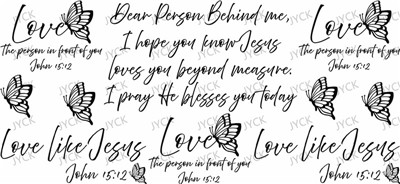 Love
The person in front of you
John 15:12
Dear Person Behind me,
I hope you know Jesus
loves you beyond measure.
I pray He blesses you today
Love
The person in front of you
John 15:12
Love like Jesus
John 15:12
Love
The person in front of you
John 15:12
Love like Jesus
John 15:12
JYCK
JYCK
JYCK
JYCK
JYCK
JYCK
JYCK
JYCK
JYCK
JYCK
JYCK
JYCK